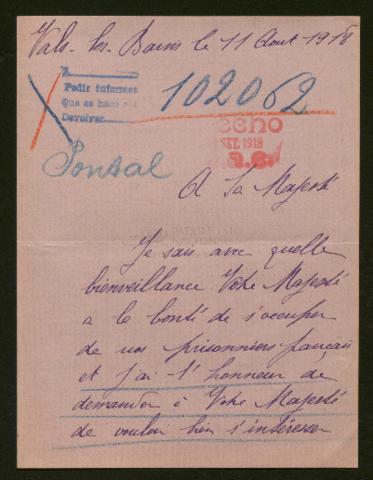 Vals-les-Bains le 11 Aout 1918
Pedir informes
Que se hace
Devolver
102062
HECHO
SET. 1918
Ponsal
A Sa Majesté
Je sais avec quelle
bienveillance Votre Majesté
a la bonté de s'occuper
de nos prisonniers français
et j'ai l'honneur de
demander à Votre Majesté
de vouloir bien s'intéresser